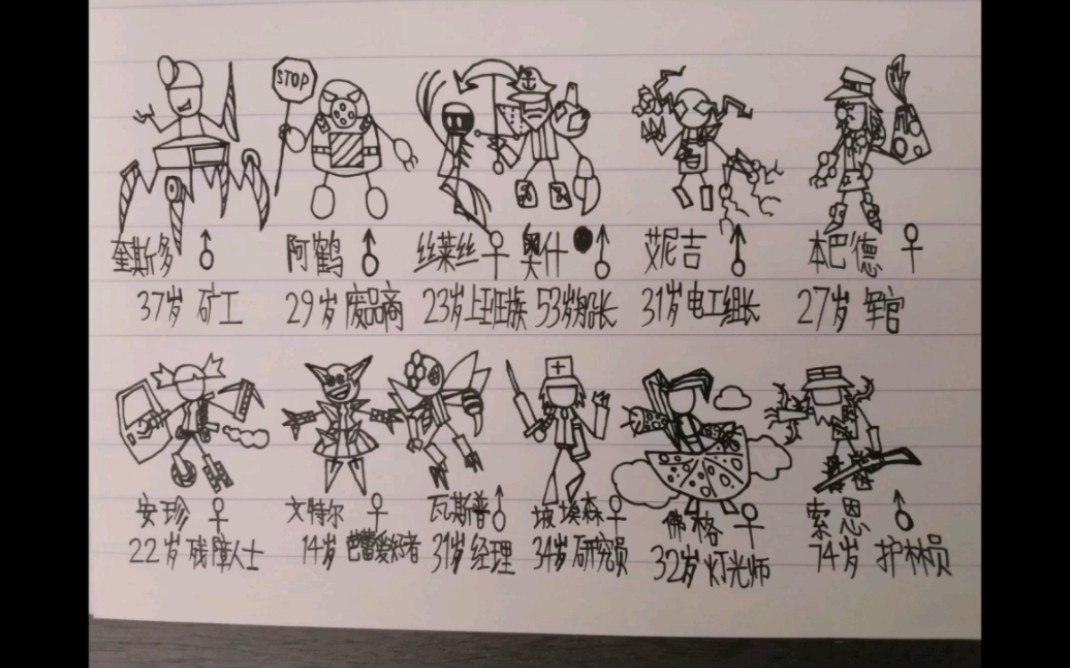 STOP
奎斯多♂ 阿鹤♂ 丝莱丝♀ 奥什♂ 艾妮吉♂ 本巴德♀
37岁 矿工 29岁 废品商 23岁上班族 53岁船长 31岁电工组长 27岁 军官
安珍♀ 文特尔♀ 瓦斯普♂ 埃森♀ 佛格♀ 索恩♂
22岁残障人士 14岁芭蕾爱好者 31岁经理 34岁研究员 32岁灯光师 74岁 护林员